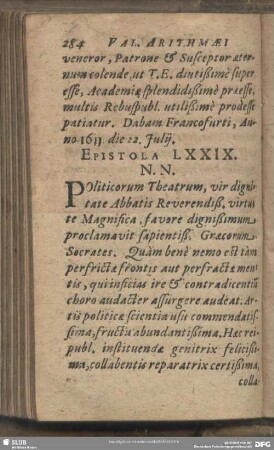 284 VAL. ARITHMÆI
veneror, Patrone & Susceptor æter-
num colende, ut T.E. diutißimè super
esse, Academiæ splendidißimè præesse,
multis Rebuspubl. utilißimè prodesse
patiatur. Dabam Francofurti, An-
no 1611 die 22. Julij.
EPISTOLA LXXIX.
N. N.
POliticorum Theatrum, vir digni
tate Abbatis Reverendiß. virtu
te Magnifica, favore dignißimum
proclamavit sapientiß. Græcorum
Socrates. Quàm benè nemo est tàm
perfrictæ frontis aut perfractæ men-
tis, qui inficias ire & contradicentiũ
choro audacter assurgere audeat. Ar-
tis politicæ scientia usu commendatis-
sima, fructu abundantißima. Hæc rei-
publ. instituendæ genitrix felicißi-
ma, collabentis reparatrix certißima,
colla-
SLUB
Wir führen Wissen.
DFG